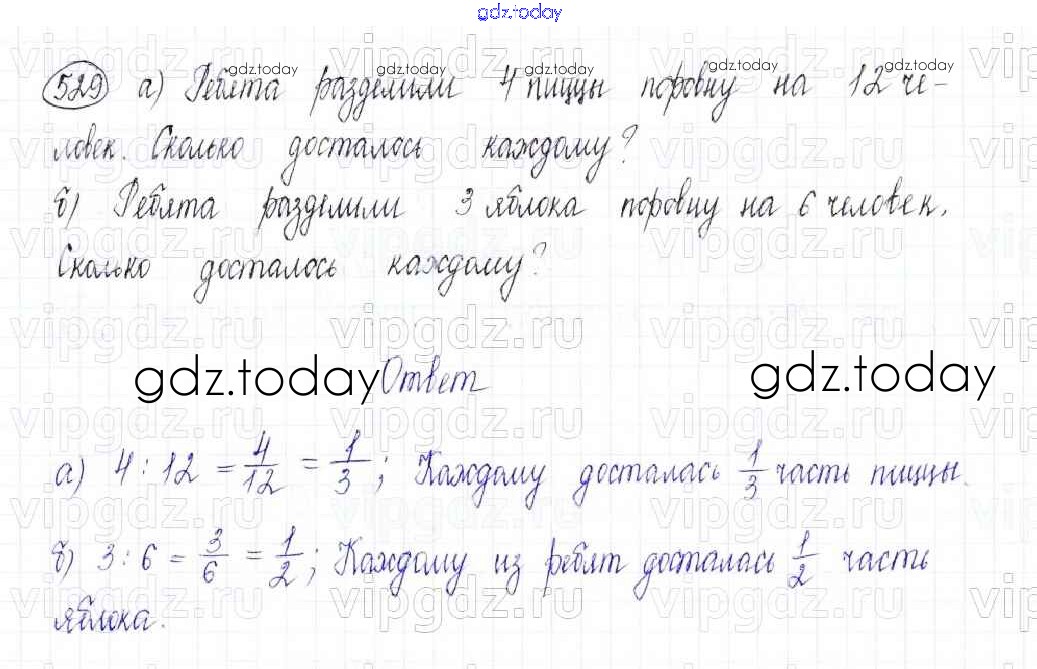 gdz.today
529 а) Ребята разделили 4 пиццы поровну на 12 че-
ловек. Сколько досталось каждому?
б) Ребята разделили 3 яблока поровну на 6 человек.
Сколько досталось каждому?
gdz.today Ответ gdz.today
а) 4 : 12 = 4/12 = 1/3; Каждому досталась 1/3 часть пиццы.
б) 3 : 6 = 3/6 = 1/2; Каждому из ребят досталась 1/2 часть
яблока.